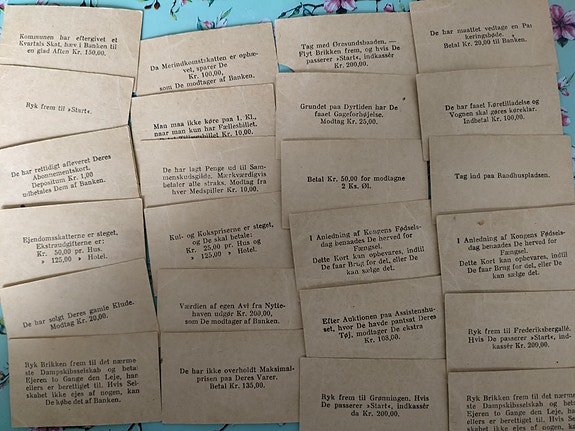 Kommunen har eftergivet et
Kvartals Skat, hæv i Banken til
en glad Aften Kr. 150,00.
Ryk frem til »Start«.
De har rettidigt afleveret Deres
Abonnementskort.
Depositum Kr. 1,00
udbetales Dem af Banken.
Ejendomsskatterne er steget,
Ekstraudgifterne er:
Kr. 50,00 pr. Hus.
» 125,00 » Hotel.
De har solgt Deres gamle Klude.
Modtag Kr. 20,00.
Ryk Brikken frem til det nærme
ste Dampskibsselskab og beta
Ejeren to Gange den Leje, har
ellers er berettiget til. Hvis Sel-
skabet ikke ejes af nogen, kan
De købe det af Banken.
Da Merindkomstskatten er ophæ-
vet, sparer De
Kr. 100,00,
som De modtager af Banken.
Man maa ikke køre paa 1. Kl.,
naar man kun har Fællesbillet.
Kr. 10,00.
De har lagt Penge ud til Sam-
menskudsgilde. Mærkværdigvis
betaler alle straks. Modtag fra
hver Medspiller Kr. 10,00.
Kul- og Kokspriserne er steget,
og De skal betale:
Kr. 25,00 pr. Hus og
» 125,00 » Hotel.
Værdien af egen Avl fra Nytte-
haven udgør Kr. 200,00,
som De modtager af Banken.
De har ikke overholdt Maksimal-
prisen paa Deres Varer.
Betal Kr. 135,00.
Tag med Øresundsbaaden, —
Flyt Brikken frem, og hvis De
passerer »Start«, indkassér
Kr. 200,00.
Grundet paa Dyrtiden har De
faaet Gageforhøjelse.
Modtag Kr. 25,00.
Betal Kr. 50,00 for modtagne
2 Ks. Øl.
I Anledning af Kongens Fødsels-
dag benaades De herved for
Fængsel.
Dette Kort kan opbevares, indtil
De faar Brug for det, eller De
kan sælge det.
Efter Auktionen paa Assistenshu-
set, hvor De havde pantsat Deres
Tøj, modtager De ekstra
Kr. 108,00.
Ryk frem til Grønningen, Hvis
De passerer »Start«, indkassér
da Kr. 200,00.
De har maattet vedtage en Par
keringsbøde.
Betal Kr. 20,00 til Banken.
De har faaet Køretilladelse og
Vognen skal gøres køreklar.
Indbetal Kr. 100,00.
Tag ind paa Raadhuspladsen.
I Anledning af Kongens Fødsels-
dag benaades De herved for
Fængsel.
Dette Kort kan opbevares, indtil
De faar Brug for det, eller De
kan sælge det.
Ryk frem til Frederiksbergallé.
Hvis De passerer »Start«, ind-
kassér Kr. 200,00.
Ryk Brikken frem til det nærme
ste Dampskibsselskab og betal
Ejeren to Gange den Leje, han
ellers er berettiget til. Hvis Sel
skabet ikke ejes af nogen, ka